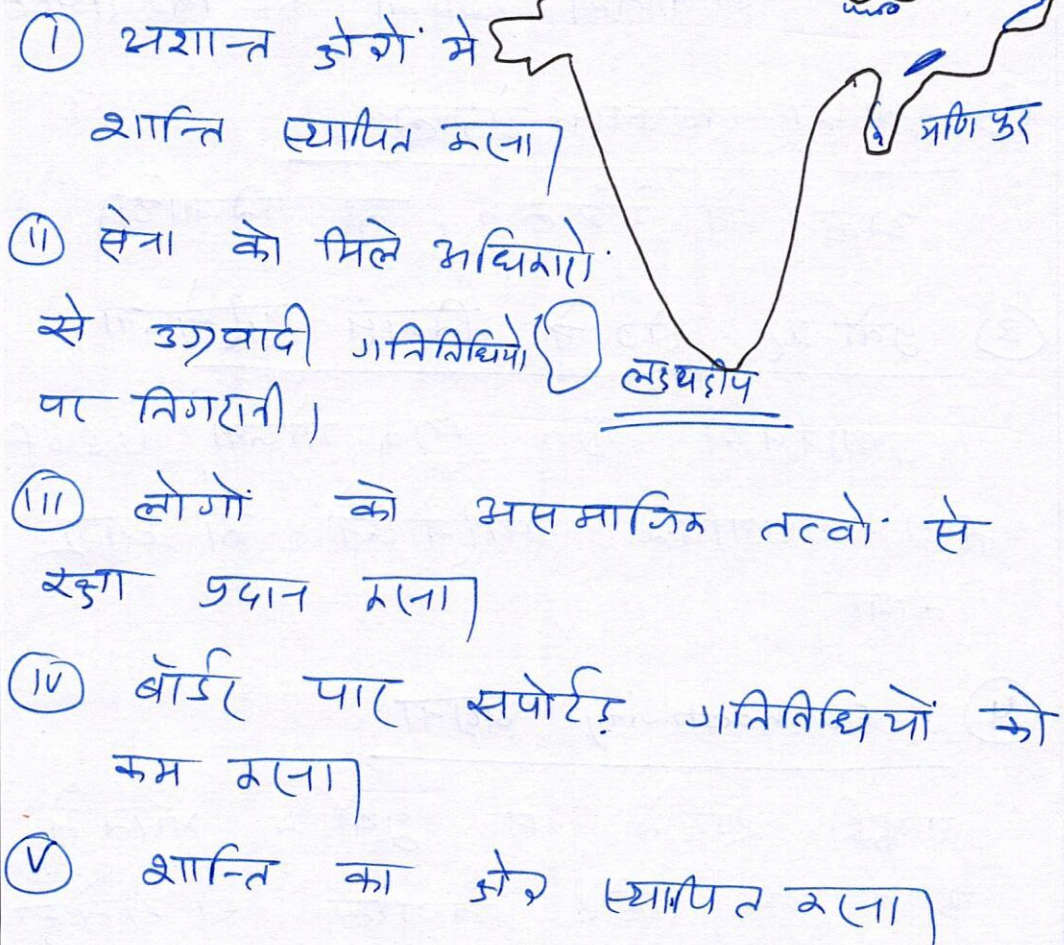 (I) अशान्त क्षेत्रों में
शान्ति स्थापित करना।
(II) सेना को मिले अधिकारों
से उग्रवादी गतिविधियों
पर निगरानी।
(III) लोगों को असमाजिक तत्वों से
रक्षा प्रदान करना।
(IV) बॉर्डर पार सपोर्टेड़ गतिविधियों को
कम करना।
(V) शान्ति का क्षेत्र स्थापित करना।
मणिपुर
लक्ष्यद्वीप